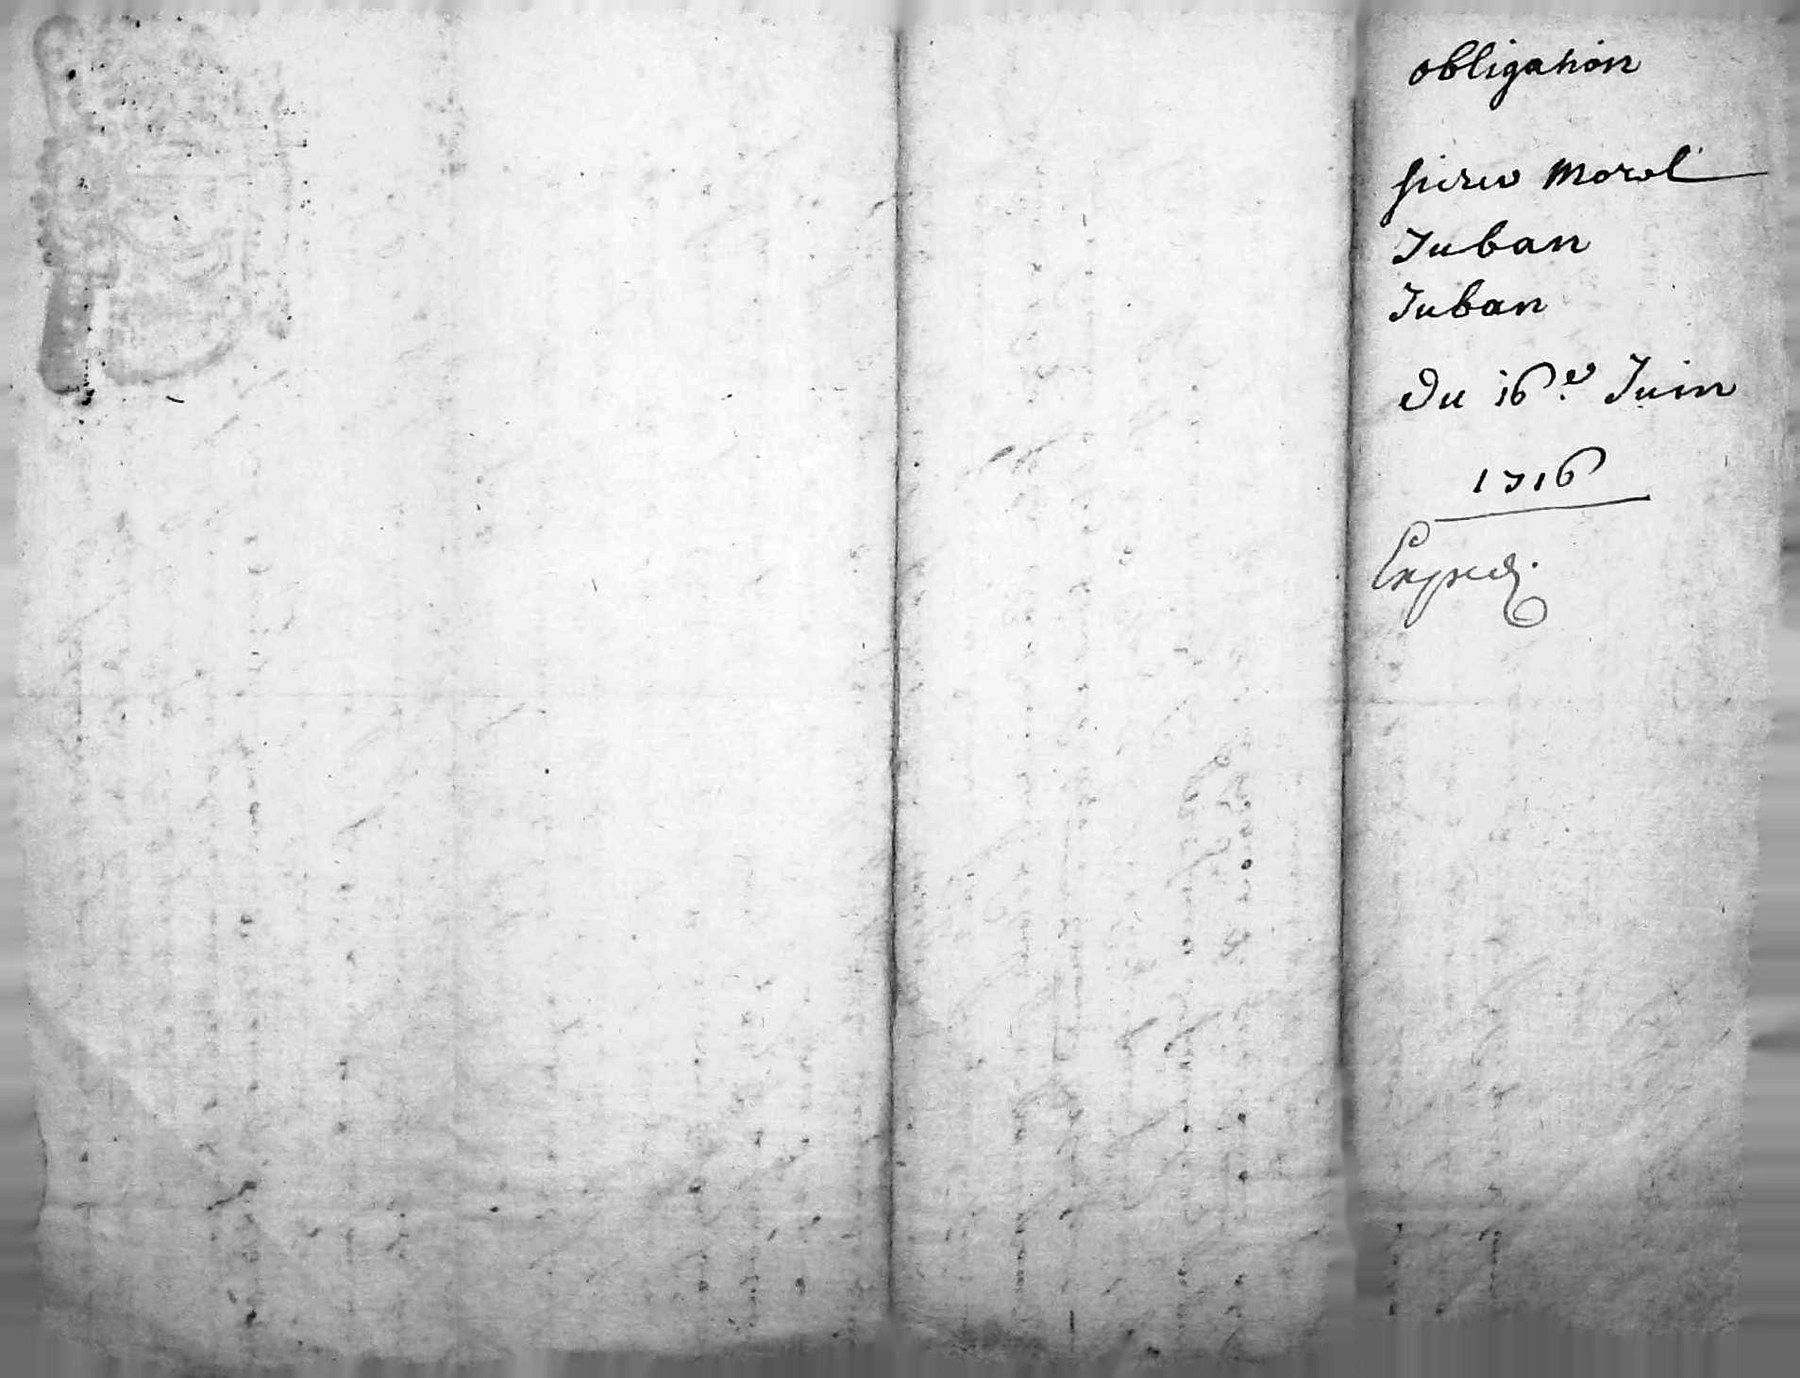 obligation
pierre Morel
Juban
Juban
Du 16.e Juin
1716
Exped.